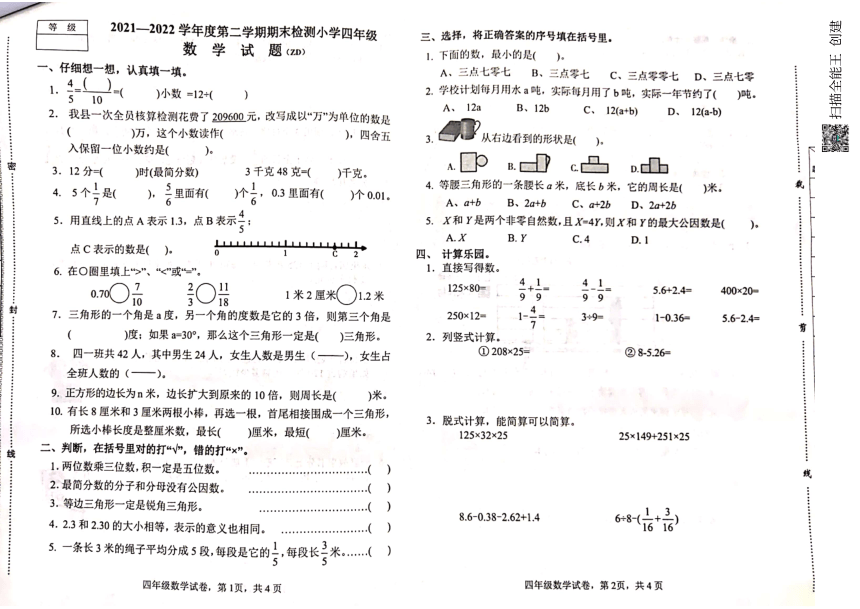 等 级
2021—2022 学年度第二学期期末检测小学四年级
数 学 试 题(ZD)
一、仔细想一想，认真填一填。
1. 4/5=( )/10=( )小数 =12÷( )
2. 我县一次全员核算检测花费了 209600 元，改写成以“万”为单位的数是
( )万，这个小数读作( )，四舍五
入保留一位小数约是( )。
3. 12 分=( )时(最简分数) 3 千克 48 克=( )千克。
4. 5 个1/7是( )，5/6里面有( )个1/6，0.3 里面有( )个 0.01。
5. 用直线上的点 A 表示 1.3，点 B 表示4/5；
点 C 表示的数是( )。
0 1 C 2
6. 在〇圈里填上“>”、“<”或“=”。
0.70〇7/10 2/3〇11/18 1 米 2 厘米〇1.2 米
7. 三角形的一个角是 a 度，另一个角的度数是它的 3 倍，则第三个角是
( )度；如果 a=30°，那么这个三角形一定是( )三角形。
8. 四一班共 42 人，其中男生 24 人，女生人数是男生（——），女生占
全班人数的（——）。
9. 正方形的边长为 n 米，边长扩大到原来的 10 倍，则周长是( )米。
10. 有长 8 厘米和 3 厘米两根小棒，再选一根，首尾相接围成一个三角形，
所选小棒长度是整厘米数，最长( )厘米，最短( )厘米。
二、判断，在括号里对的打“√”，错的打“×”。
1. 两位数乘三位数,积一定是五位数。 ……………………( )
2. 最简分数的分子和分母没有公因数。 ……………………( )
3. 等边三角形一定是锐角三角形。 ……………………( )
4. 2.3 和 2.30 的大小相等，表示的意义也相同。 ………………( )
5. 一条长 3 米的绳子平均分成 5 段,每段是它的1/5,每段长3/5米。……( )
四年级数学试卷，第 1页，共 4 页
三、选择，将正确答案的序号填在括号里。
1. 下面的数，最小的是( )。
A、三点七零七 B、三点零七 C、三点零零七 D、三点七零
2. 学校计划每月用水 a 吨，实际每月用了 b 吨，实际一年节约了( )吨。
A、 12a B、12b C、 12(a+b) D、 12(a-b)
3. 从右边看到的形状是( )。
A. B. C. D.
4. 等腰三角形的一条腰长 a 米，底长 b 米，它的周长是( )米。
A、a+b B、2a+b C、a+2b D、2a+2b
5. X 和 Y 是两个非零自然数,且 X=4Y,则 X 和 Y 的最大公因数是( )。
A. X B. Y C. 4 D. 1
四、 计算乐园。
1. 直接写得数。
125×80= 4/9+1/9= 4/9-1/9= 5.6+2.4= 400×20=
250×12= 1-4/7= 3÷9= 1-0.36= 5.6-2.4=
2. 列竖式计算。
① 208×25= ② 8-5.26=
3. 脱式计算，能简算可以简算。
125×32×25 25×149+251×25
8.6-0.38-2.62+1.4 6÷8-(1/16+3/16)
四年级数学试卷，第 2页，共 4 页
密
封
线
裁
剪
线
扫描全能王 创建